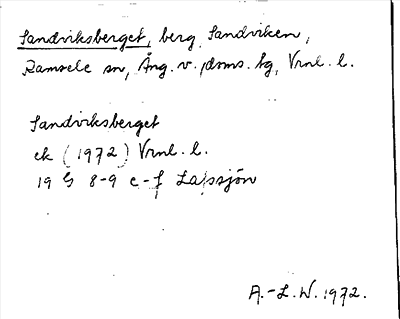 Sandviksberget, berg, Sandviken,
Ramsele sn, Ång. v. doms. tg, Vrnl. l.
Sandviksberget
ek (1972) Vrnl. l.
19 G 8-9 e-f Lafssjön
A.-L.W. 1972.